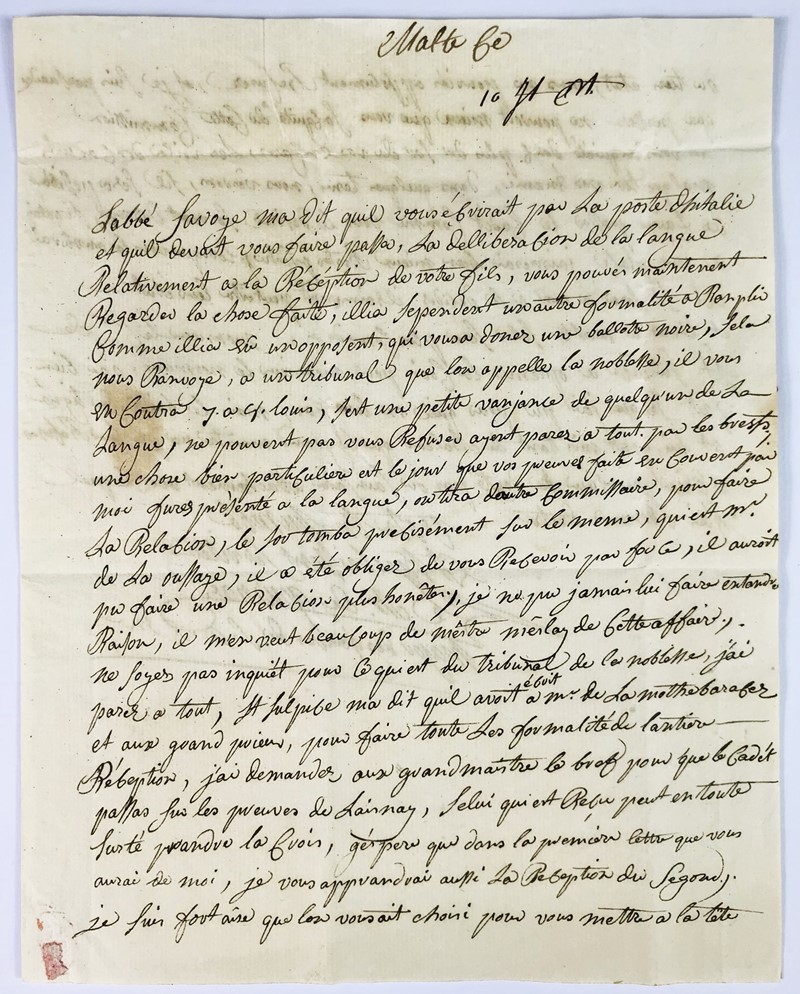 Malte Ce
10
Labbé Savoye ma dit quil vous écrirait par La poste dhitalie
et quil devait vous faire passa, La delliberation de la langue
Relativement a la Recéption de votre fils, vous pouvés maintenent
Regarder la chose faite, illia sependent un autre formalité a Ranplir
Comme illia eû un opposent, qui vous a donez une ballote noire, Sela
nous Ranvoye, a un tribunal que lon appelle la noblesse, il vous
en Contra 3. a 4. louis, sert une petite vanjance de quelqu'un de La
Langue, ne pouvent pas vous Refuser ayent parez a tout. par les brefs,
une chose bien particuliere est le jour que vos preuves faite en Couvent par
moi fures présenté a la langue, on tira dautre Commissaire, pour faire
La Relation, le sor tomba precisément sur le meme, qui est mr.
de La oussaye, il a été obligez de vous Recevoir par force, il auroit
pu faire une Relation plus honête, je ne pu jamais lui faire entandre
Raison, il men veut beaucoups de mêstre mêslay de Cette affair,.
ne soyes pas inquiét pour ce qui est du tribunal de la noblesse, j'ai
parez a tout, St sulpice ma dit quil avoit écrit a mr. de La mothe baracez
et aux grand prieur, pour faire toute Les formalité de lantiere
Réception, j'ai demandez aux grandmaitre le bref pour que le Cadét
passas sur les preuves de Laisnay, Selui qui est Reçu peut en toute
surté prandre la Croix, géspere que dans la premiére lettre que vous
aurai de moi, je vous apprandrai aussi La Reception du Segond,.
je suis fort aîse que lon vous ait choisi pour vous mettre a la tête